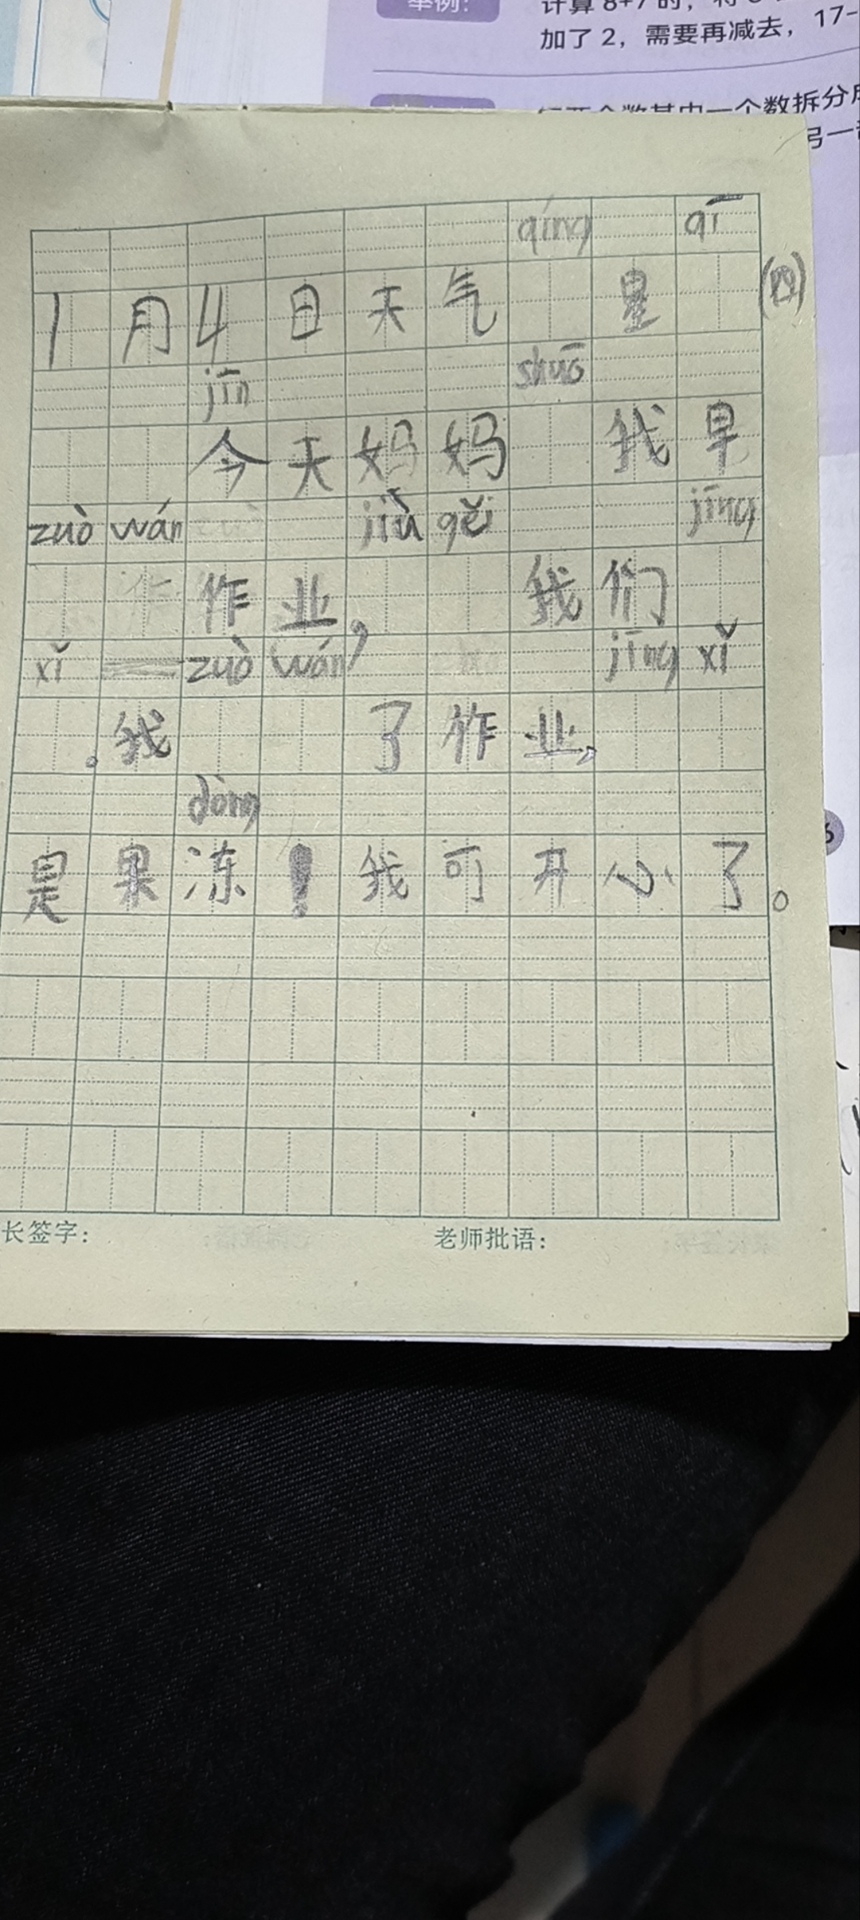 举例：
计算 8+7 时，将 8
加了 2，需要再减去，17-
一个数拆分
另一
qíng qī
1月4日天气 星 (四)
jīn shuō
今天妈妈 我早
zuò wán jiù gěi jīng
作业， 我们
xǐ zuò wán jīng xǐ
。我 了作业，
dòng
是果冻！我可开心了。
长签字：
老师批语：